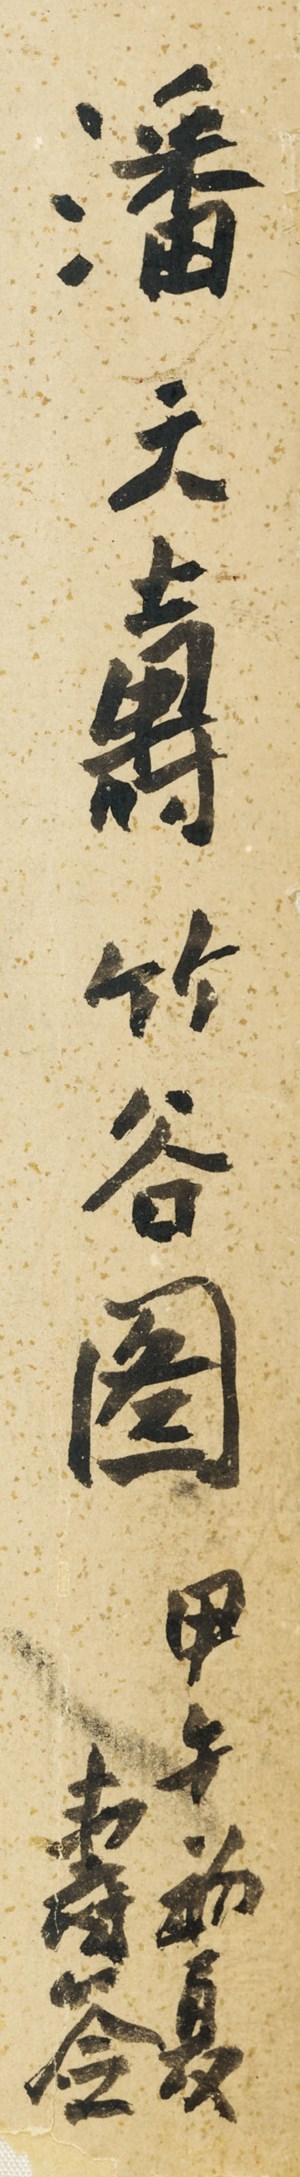 潘天壽竹谷圖
甲午初夏
壽簽